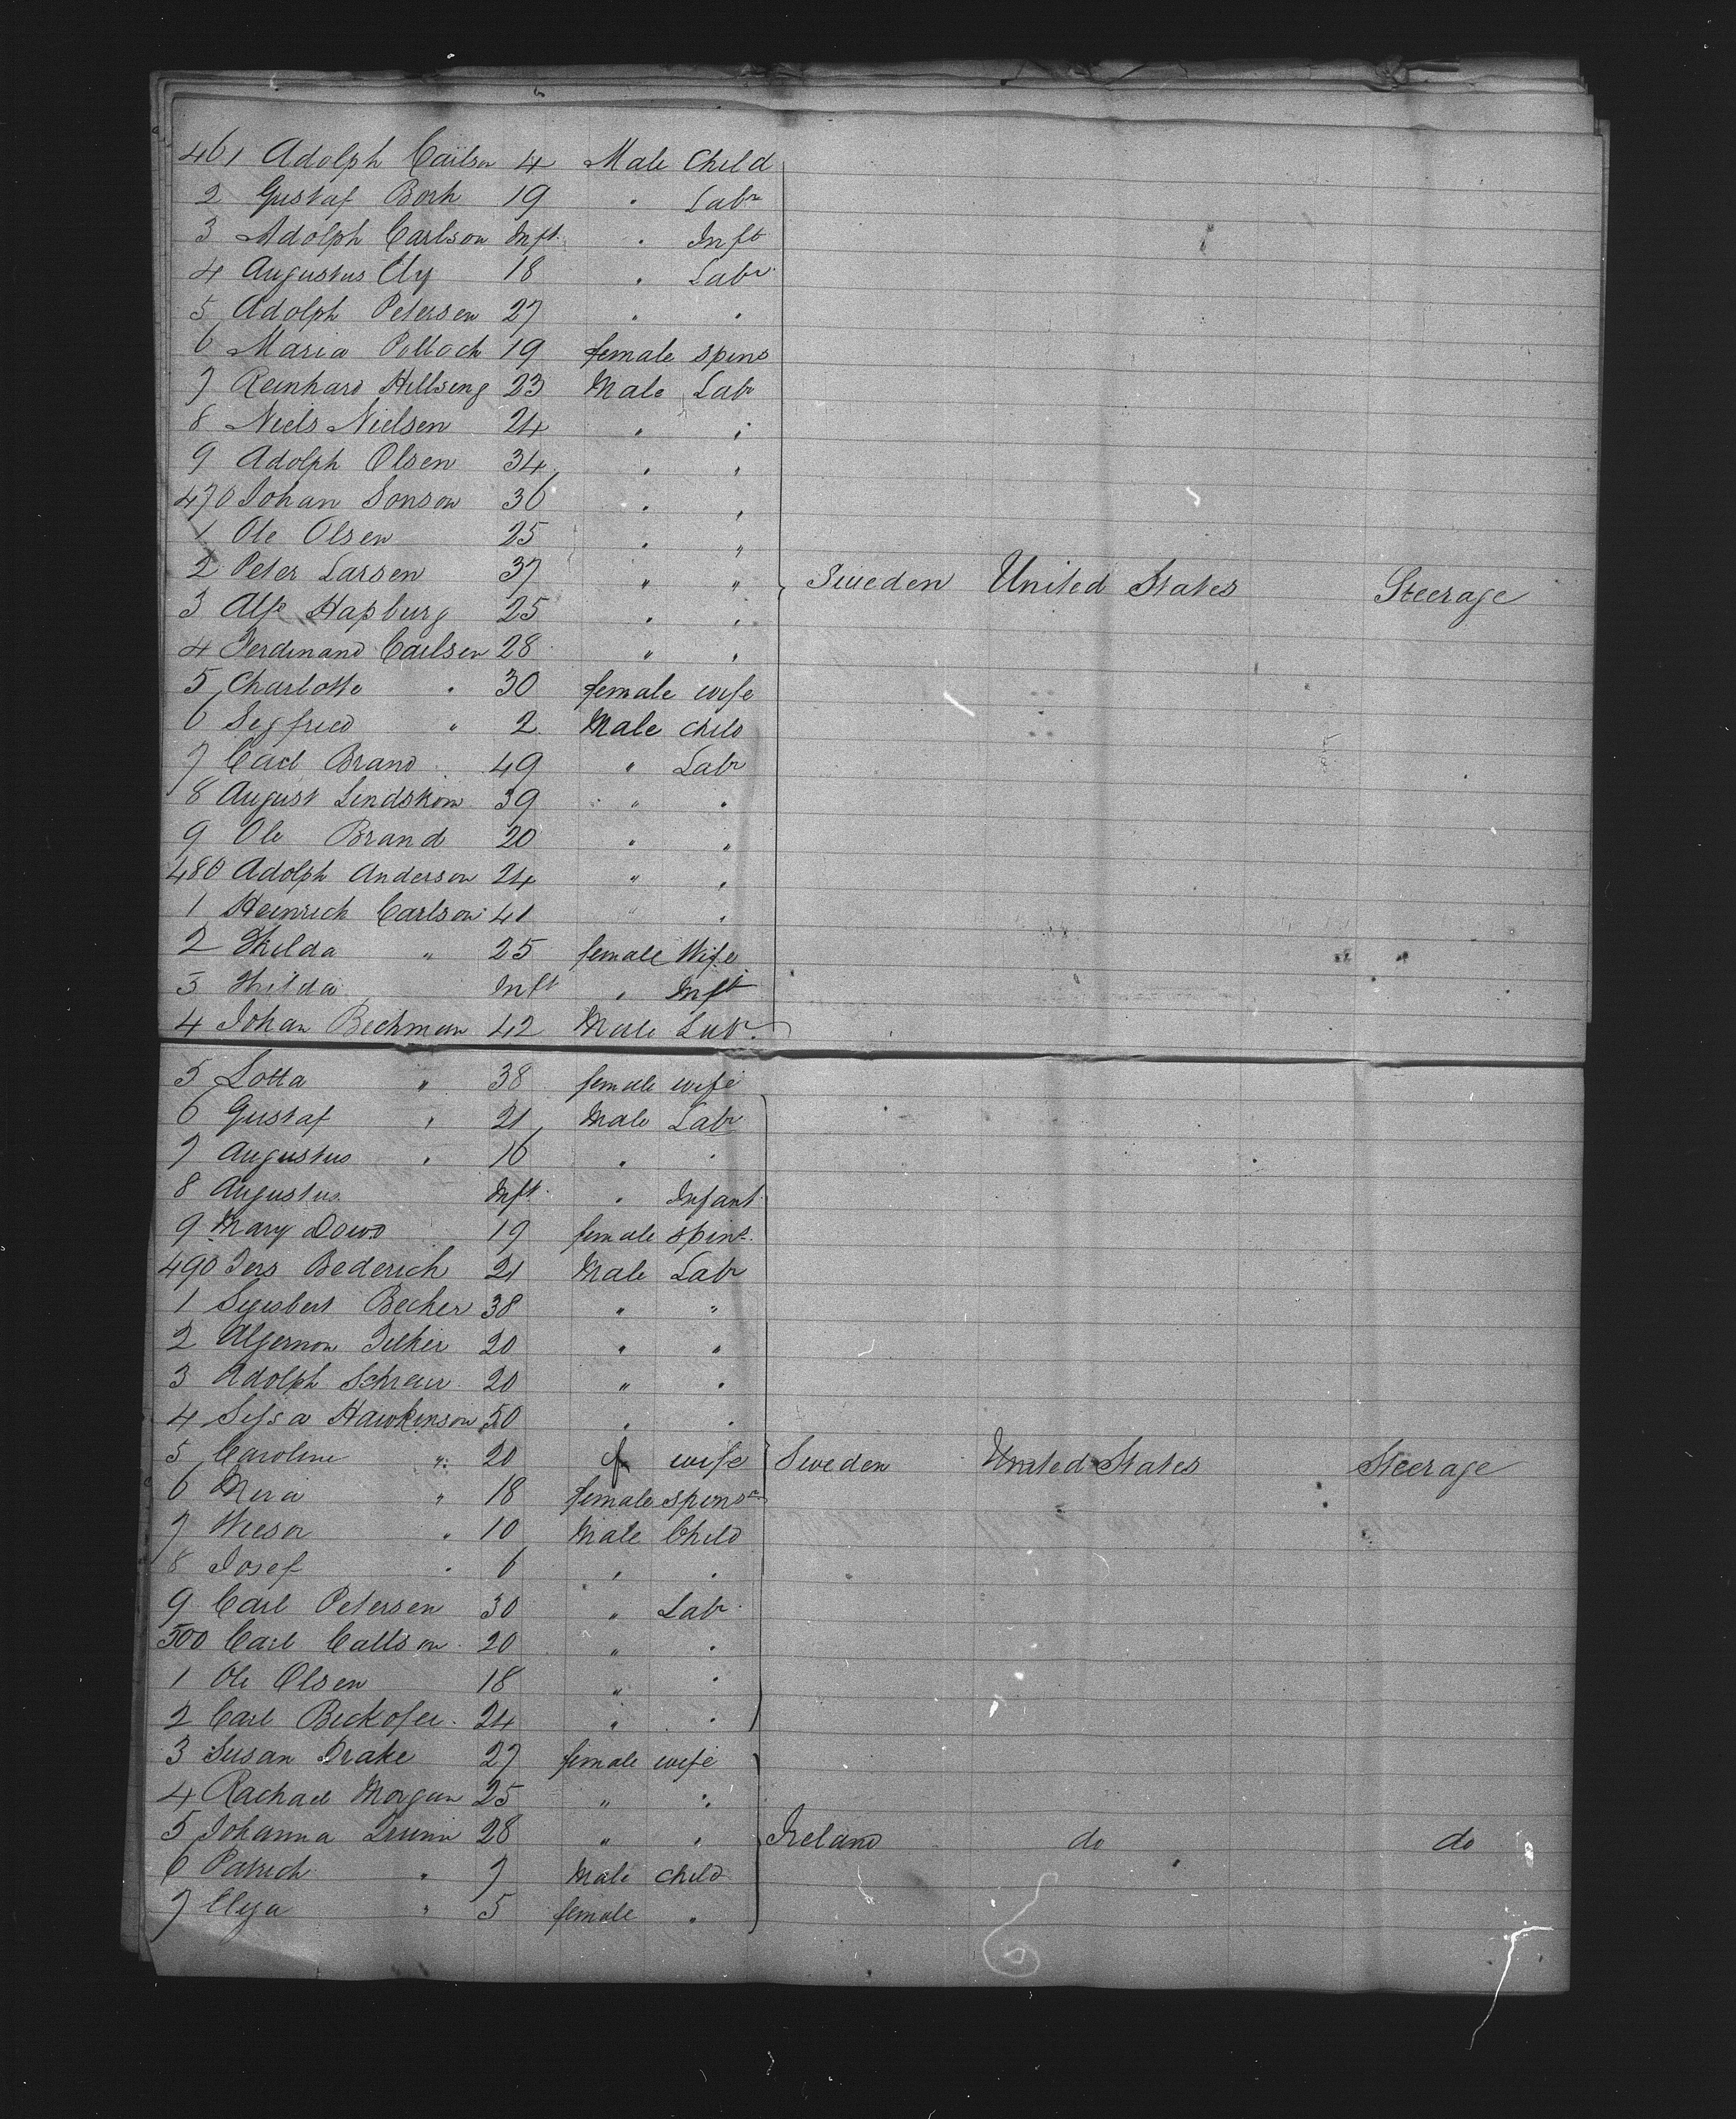 461 Adolph Carlson 4 Male Child
2 Gustaf Bork 19 " Labr
3 Adolph Carlson Inft. " Inft
4 Augustus Ely 18 " Labr
5 Adolph Petersen 27 " "
6 Maria Pollock 19 female spins
7 Reinhard Hillseng 23 Male Labr
8 Niels Nielsen 24 " "
9 Adolph Olsen 34 " "
470 Johan Sonson 36 " "
1 Ole Olsen 25 " "
2 Peter Larsen 37 " " Sweden United States Steerage
3 Alf Hapburg 25 " "
4 Ferdinand Carlsen 28 " "
5 Charlotte " 30 female wife
6 Segfried " 2 Male child
7 Carl Brand 49 " Labr
8 August Lindskom 39 " "
9 Ole Brand 20 " "
480 Adolph Anderson 24 " "
1 Heinrich Carlson 41 " "
2 Hilda " 25 female Wife
3 Hilda Inft " Inft
4 Johan Beckman 42 Male Labr
5 Lotta " 38 female wife
6 Gustaf " 21 Male Labr
7 Augustus " 16 " "
8 Augustus Inft " Infant
9 Mary Dowd 19 female spins.
490 Jers Bederich 21 Male Labr
1 Becker 38 " "
2 Algernon 20 " "
3 Adolph 20 " "
4 Hawkinson 50 " "
5 Caroline " 20 f wife Sweden United States Steerage
6 " 18 female spinsr
7 " 10 Male Child
8 Josef " 6 " "
9 Carl Petersen 30 " Labr
500 Carl Callson 20 " "
1 Ole Olsen 18 " "
2 Carl Beckofer 24 " "
3 Susan Drake 27 female wife
4 Rachael Morgan 25 " "
5 Johanna 28 " " Ireland do do
6 Patrick " 7 Male child
7 " 5 female "
6